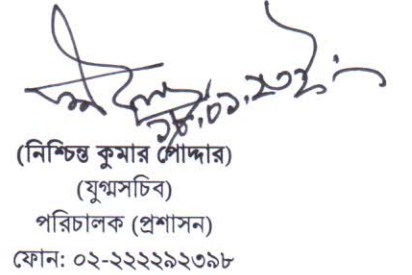 (নিশ্চিন্ত কুমার পোদ্দার)
(যুগ্মসচিব)
পরিচালক (প্রশাসন)
ফোন: ০২-২২২২৯২৩৯৮